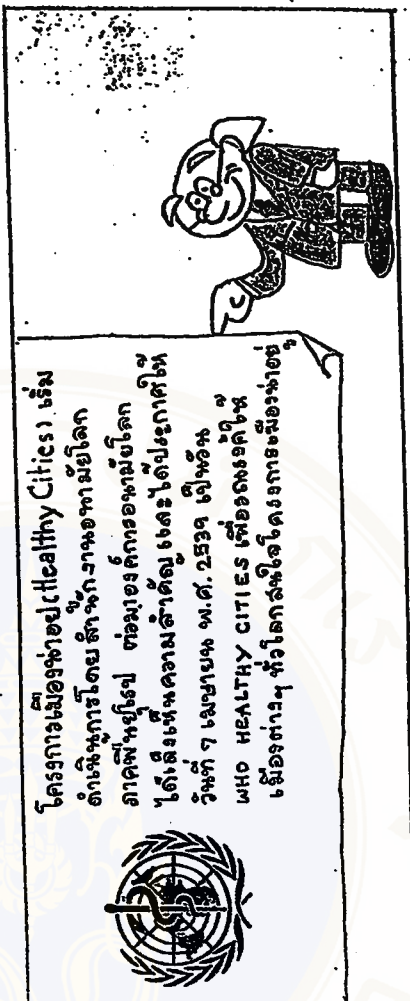 โครงการเมืองน่าอยู่(Healthy Cities) เริ่ม
ดำเนินการโดยสำนักงานอนามัยโลก
ภาคพื้นยุโรป ต่อมาองค์การอนามัยโลก
ได้เล็งเห็นความสำคัญ และได้ประกาศให้
วันที่ ๗ เมษายน พ.ศ. 2539 เป็นวัน
WHO HEALTHY CITIES เพื่อรณรงค์ให้
เมืองต่างๆ ทั่วโลกสนใจโครงการเมืองน่าอยู่